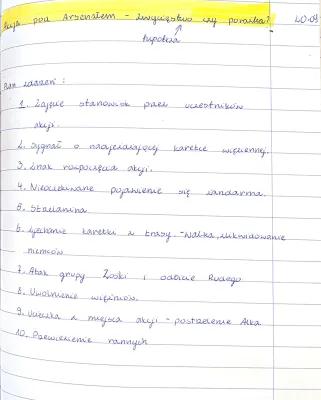 Akcja pod Arsenałem - zwycięstwo czy porażka?
hipoteza
Plan zdarzeń :
1. Zajęcie stanowisk przez uczestników
akcji.
2. Sygnał o nadjeżdżającej karetce więziennej.
3. Znak rozpoczęcia akcji.
4. Nieoczekiwane pojawienie się żandarma.
5. Strzelanina
6. Zjechanie karetki z trasy - walka, zlikwidowanie
niemców
7. Atak grupy Zośki i odbicie Rudego
8. Uwolnienie więźniów.
9. Ucieczka z miejsca akcji - postrzelenie Alka.
10. Przewiezienie rannych